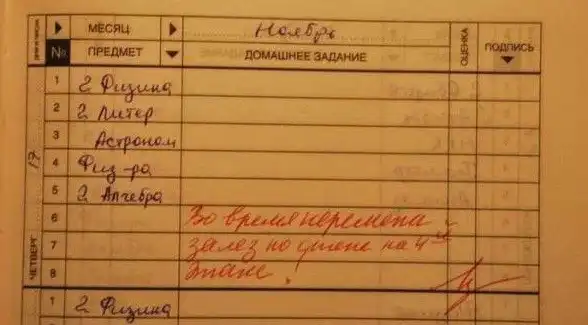 МЕСЯЦ Ноябрь
№ ПРЕДМЕТ ДОМАШНЕЕ ЗАДАНИЕ ОЦЕНКА ПОДПИСЬ
1 2 Физика
2 2 Литер
3 Астроном
4 Физ-ра
5 2 Алгебра
17
ЧЕТВЕРГ
6 Во время перемены
7 залез по стене на 4й
8 этаж!
1 2 Физика